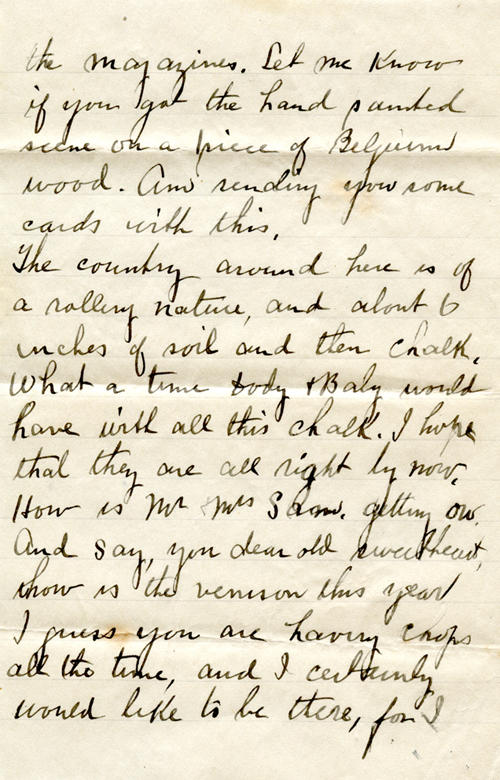 the magazines. Let me know
if you got the hand painted
scene on a piece of Belgium
wood. Am sending you some
cards with this.
The country around here is of
a rolling nature, and about 6
inches of soil and then chalk.
What a time Dody & Baby would
have with all this chalk. I hope
that they are all right by now.
How is Mr & Mrs Sam. getting on.
And say, you dear old sweetheart,
how is the venison this year
I guess you are having chops
all the time, and I certainly
would like to be there, for I